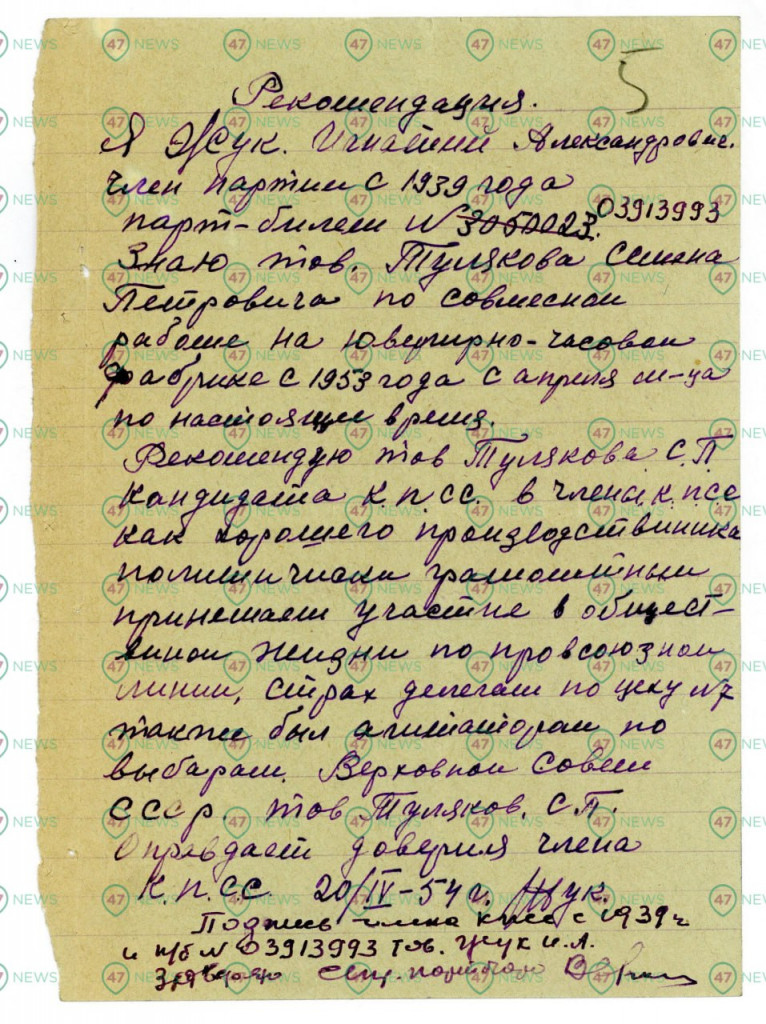 5
Рекомендация.
Я Жук. Игнатий Александрович.
член партии с 1939 года
парт-билет № 3050023. 03913993
Знаю тов. Тулякова Семена
Петровича по совмесной
работе на ювелирно-часовой
фабрике с 1953 года с апреля м-ца
по настоящее время.
Рекомендую тов Тулякова С.П
кандидата К.П.СС. в члены К.ПСС
как хорошего производственика
политически грамотным
принемает участие в общест-
венной жизни по провсоюзной
линии, страх делегат по цеху №7
также был агитатором по
выборам. Верховной Совет
СССР. тов Туляков. С.П.
Оправдает доверия члена
К.П.СС. 20/IV-54 г. Жук.
Подпись члена кпсс с 1939 г
и п/б № 03913993 тов. Жук И.А.
Заверяю
47 NEWS